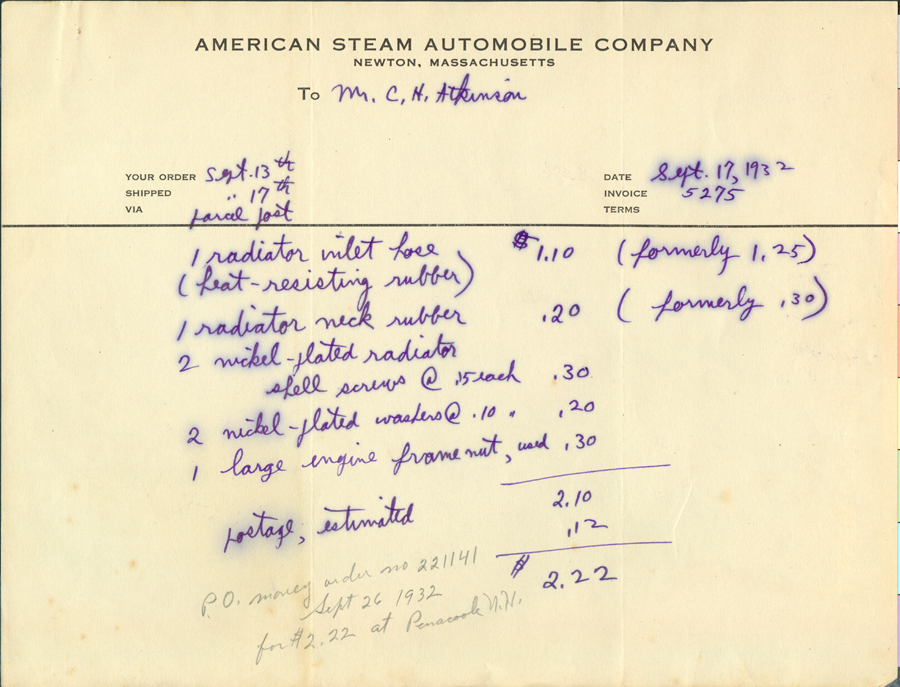 AMERICAN STEAM AUTOMOBILE COMPANY
NEWTON, MASSACHUSETTS
To Mr. C. H. Atkinson
YOUR ORDER Sept. 13th
SHIPPED " 17th
VIA parcel post
DATE Sept. 17, 1932
INVOICE 5275
TERMS
1 radiator inlet hose $1.10 (formerly 1.25)
(heat-resisting rubber)
1 radiator neck rubber .20 (formerly .30)
2 nickel-plated radiator
shell screws @ .15 each .30
2 nickel-plated washers @ .10 " .20
1 large engine frame nut, used .30
2.10
postage, estimated .12
$ 2.22
P.O. money order no 221141
Sept 26 1932
for $2.22 at Penacook N.H.